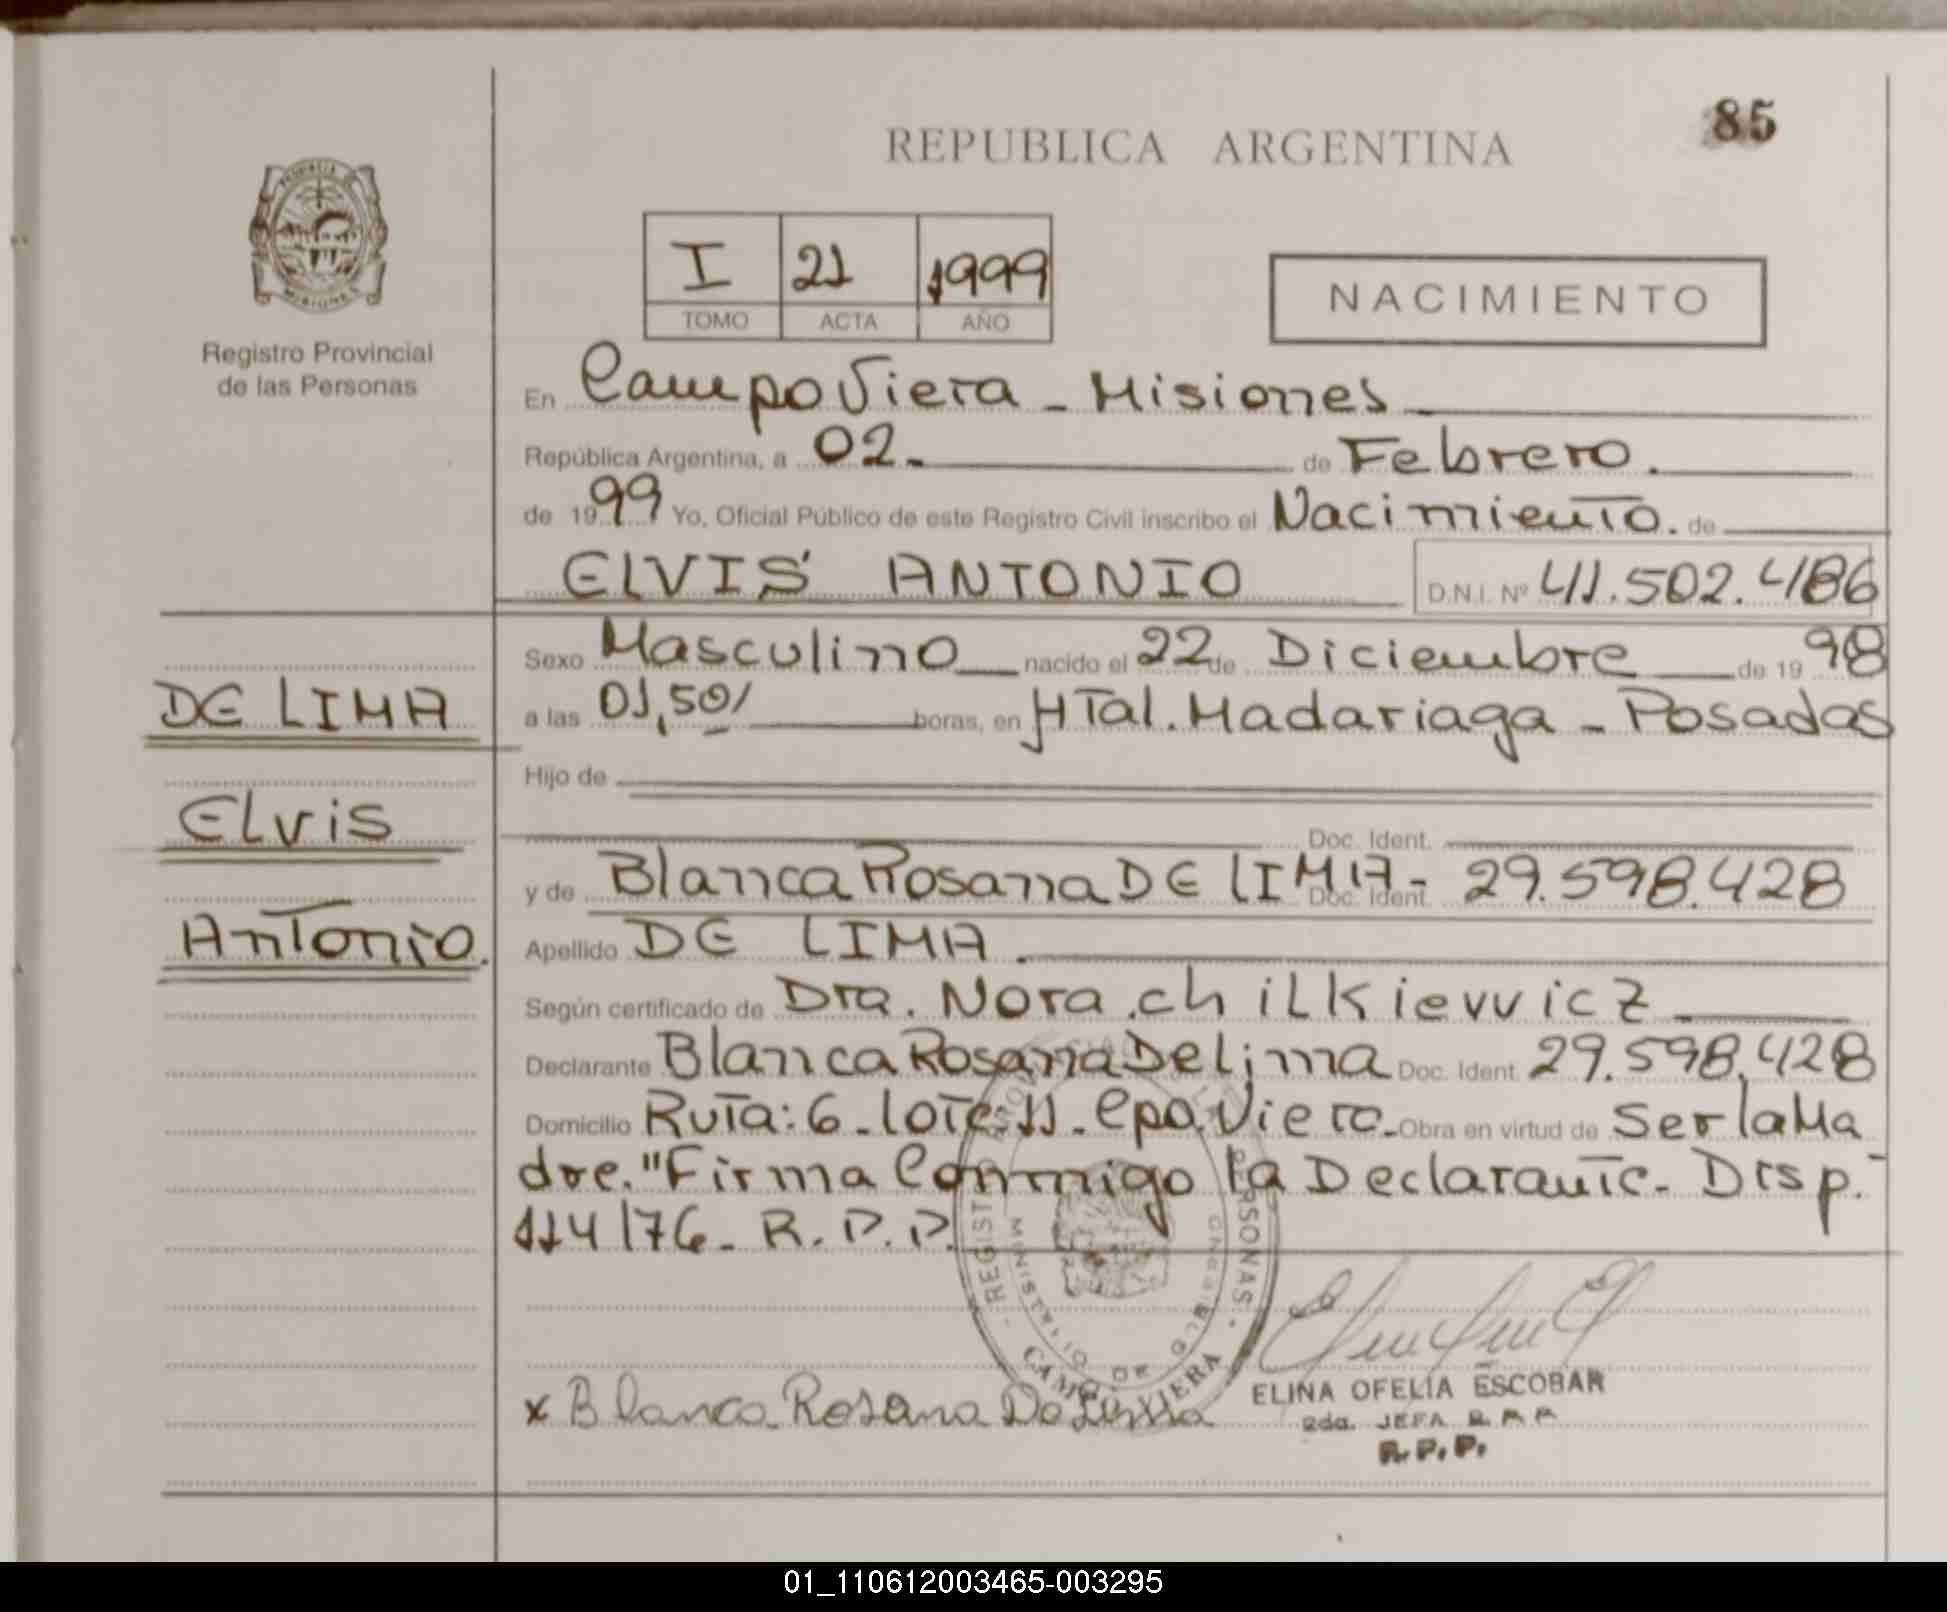 85
REPUBLICA ARGENTINA
I 21 1999
TOMO ACTA AÑO
NACIMIENTO
MISIONES
Registro Provincial
de las Personas
En Campo Viera - Misiones
República Argentina, a 02 de Febrero.
de 1999 Yo, Oficial Público de este Registro Civil inscribo el Nacimiento. de
ELVIS ANTONIO D.N.I. Nº 41.502.486
Sexo Masculino nacido el 22 de Diciembre de 1998
DE LIMA
a las 01,50/ horas, en HTal. Madariaga - Posadas
Hijo de
Elvis
Doc. Ident.
y de Blanca Rosana DE LIMA - Doc. Ident. 29.598.428
Antonio.
Apellido DE LIMA.
Según certificado de Dra. Nora chilkievvicz
Declarante Blanca Rosana De Lima Doc. Ident. 29.598.428
Domicilio Ruta: 6 - lote: 11 - Cpo. Viera - Obra en virtud de Ser la Ma
dre. "Firma Conmigo la Declarante - Disp.
114/76 - R.P.P.
REGISTRO PERSONAS
CAMPO VIERA
x Blanca Rosana De Lima
ELINA OFELIA ESCOBAR
2da. JEFA
R.P.P.
01_110612003465-003295